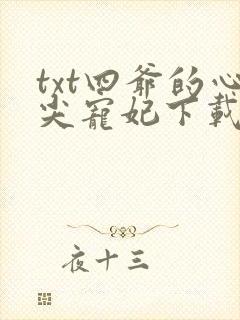 txt四爷的心
尖宠妃下载
夜十三